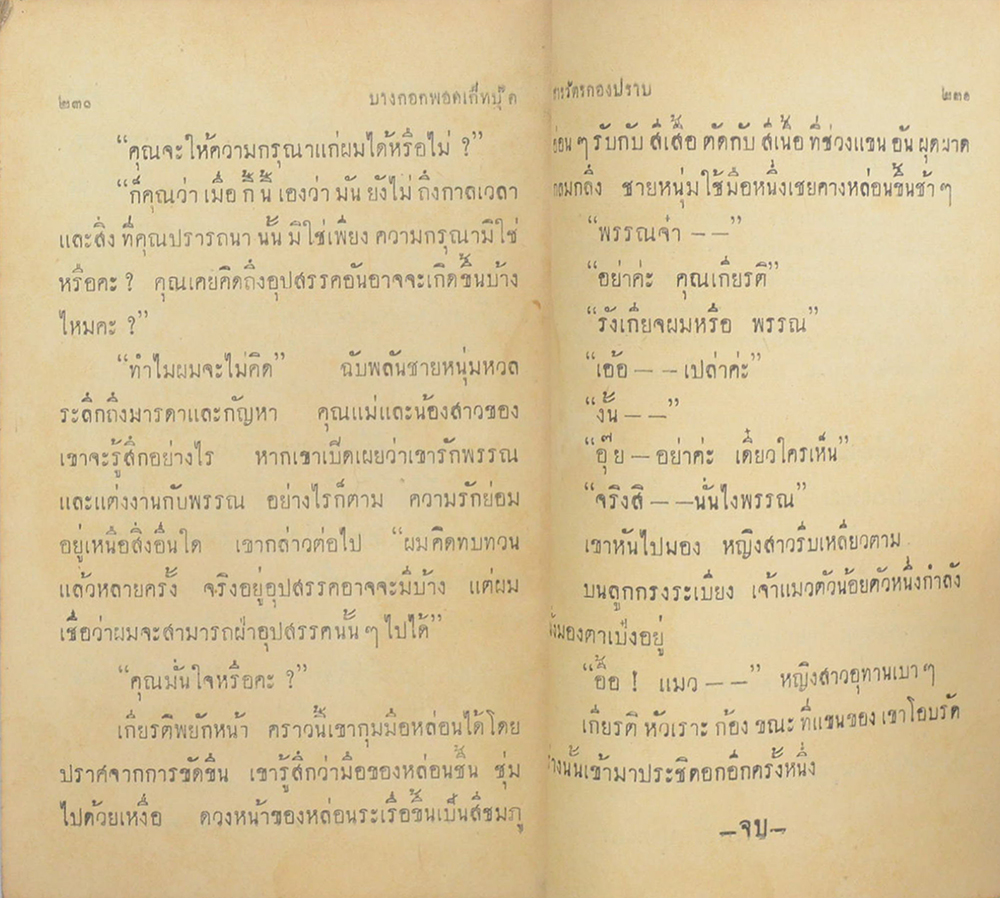 ๒๓๐
บางกอกพอคเก็ทบุ๊ค
“คุณจะให้ความกรุณาแก่ผมได้หรือไม่ ?”
“ก็คุณว่า เมื่อ กี้ นี้ เองว่า มัน ยังไม่ ถึงกาลเวลา
และสิ่ง ที่คุณปรารถนา นั้น มิใช่เพียง ความกรุณามิใช่
หรือคะ ? คุณเคยคิดถึงอุปสรรคอันอาจจะเกิดขึ้นบ้าง
ไหมคะ ?”
“ทำไมผมจะไม่คิด” ฉับพลันชายหนุ่มหวล
ระลึกถึงมารดาและกัญหา คุณแม่และน้องสาวของ
เขาจะรู้สึกอย่างไร หากเขาเปิดเผยว่าเขารักพรรณ
และแต่งงานกับพรรณ อย่างไรก็ตาม ความรักย่อม
อยู่เหนือสิ่งอื่นใด เขากล่าวต่อไป “ผมคิดทบทวน
แล้วหลายครั้ง จริงอยู่อุปสรรคอาจจะมีบ้าง แต่ผม
เชื่อว่าผมจะสามารถฝ่าอุปสรรคนั้น ๆ ไปได้”
“คุณมั่นใจหรือคะ ?”
เกียรติพยักหน้า คราวนี้เขากุมมือหล่อนได้โดย
ปราศจากการขัดขืน เขารู้สึกว่ามือของหล่อนชื้น ชุ่ม
ไปด้วยเหงื่อ ดวงหน้าของหล่อนระเรื่อขึ้นเป็นสีชมภู
๒๓๑
อ่อน ๆ รับกับ สีเสื้อ ตัดกับ สีเนื้อ ที่ช่วงแขน อัน ผุดผาด
กลมกลึง ชายหนุ่มใช้มือหนึ่งเชยคางหล่อนขึ้นช้า ๆ
“พรรณจ๋า — —”
“อย่าค่ะ คุณเกียรติ”
“รังเกียจผมหรือ พรรณ”
“เอ้อ — — เปล่าค่ะ”
“งั้น — —”
“อุ๊ย — อย่าค่ะ เดี๋ยวใครเห็น”
“จริงสิ — —นั่นไงพรรณ”
เขาหันไปมอง หญิงสาวรีบเหลียวตาม
บนลูกกรงระเบียง เจ้าแมวตัวน้อยตัวหนึ่งกำลัง
จ้องมองตาเป๋งอยู่
“อื้อ ! แมว — —” หญิงสาวอุทานเบา ๆ
เกียรติ หัวเราะ ก้อง ขณะ ที่แขนของ เขาโอบรัด
ร่างนั้นเข้ามาประชิดอกอีกครั้งหนึ่ง
—จบ—